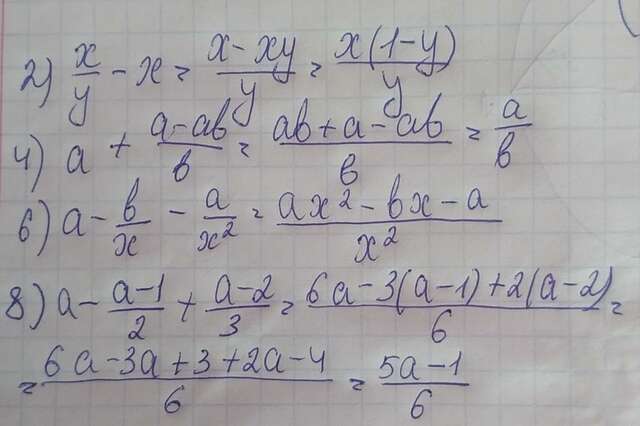 2) x/y - x = (x - xy)/y = x(1-y)/y
4) a + (a-ab)/b = (ab + a - ab)/b = a/b
6) a - b/x - a/x² = (ax² - bx - a)/x²
8) a - (a-1)/2 + (a-2)/3 = (6a - 3(a-1) + 2(a-2))/6 =
= (6a - 3a + 3 + 2a - 4)/6 = (5a - 1)/6